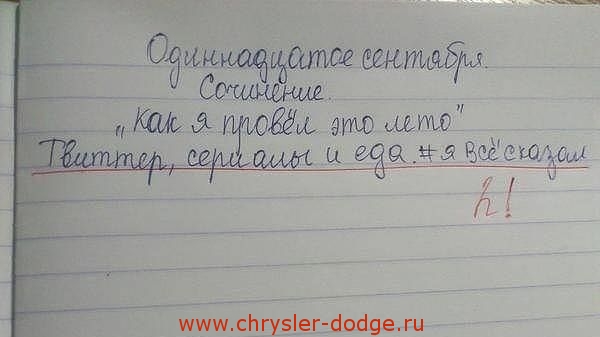 Одиннадцатое сентября.
Сочинение.
„Как я провёл это лето"
Твиттер, сериалы и еда. #я всё сказал
2!
www.chrysler-dodge.ru